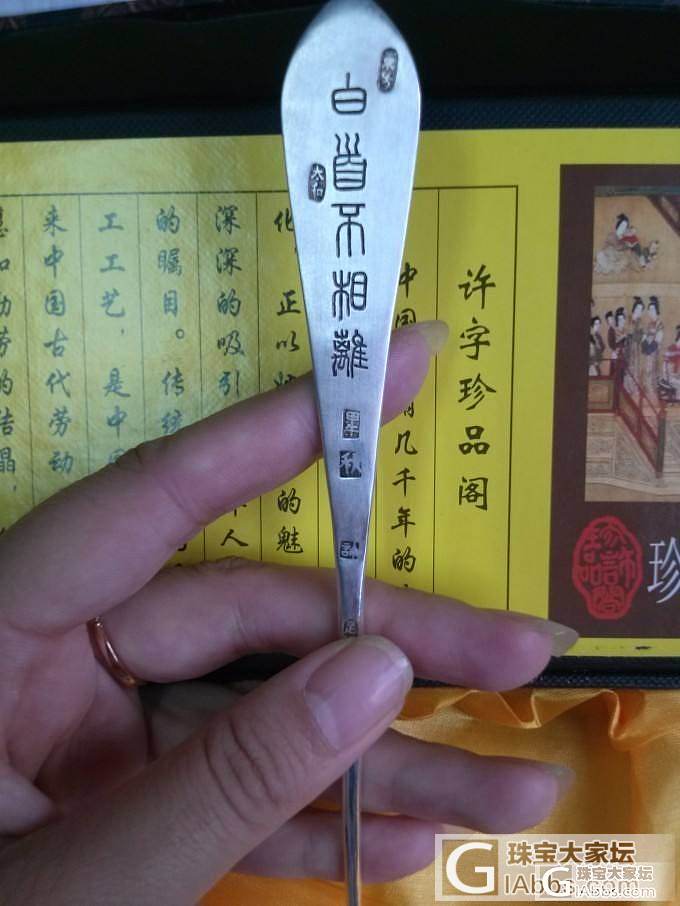 白首不相離
太和
甲午
秋
许字珍品阁
中国
几千年的
化，正以
的魅
深深的吸引
人
的瞩目。传统
工工艺，是中
来中国古代劳动
劳的结晶，
珍
珠宝大家坛